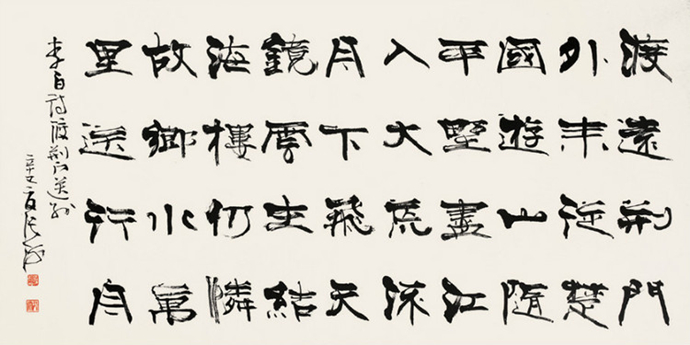 渡遠荆門
外来從楚
國遊山隨
平野盡江
入大荒流
月下飛天
鏡雲生結
海樓仍憐
故鄉水萬
里送行舟
李白詩渡荆門送别
張海